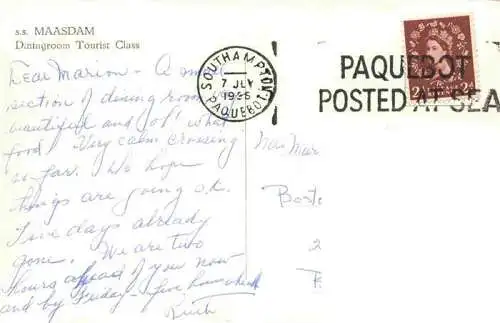 s.s. MAASDAM
Diningroom Tourist Class
Dear Marion - A small
section of dining room
beautiful and oh! what
food. Very calm crossing
so-far. We hope
things are going o.k.
Five days already
gone. We are two
hours ahead of you now
and by Friday - five hours ahead
Ruth
SOUTHAMPTON
7 JLY
PAQUEBOT
PAQUEBOT
POSTED AT SEA
2D 2D